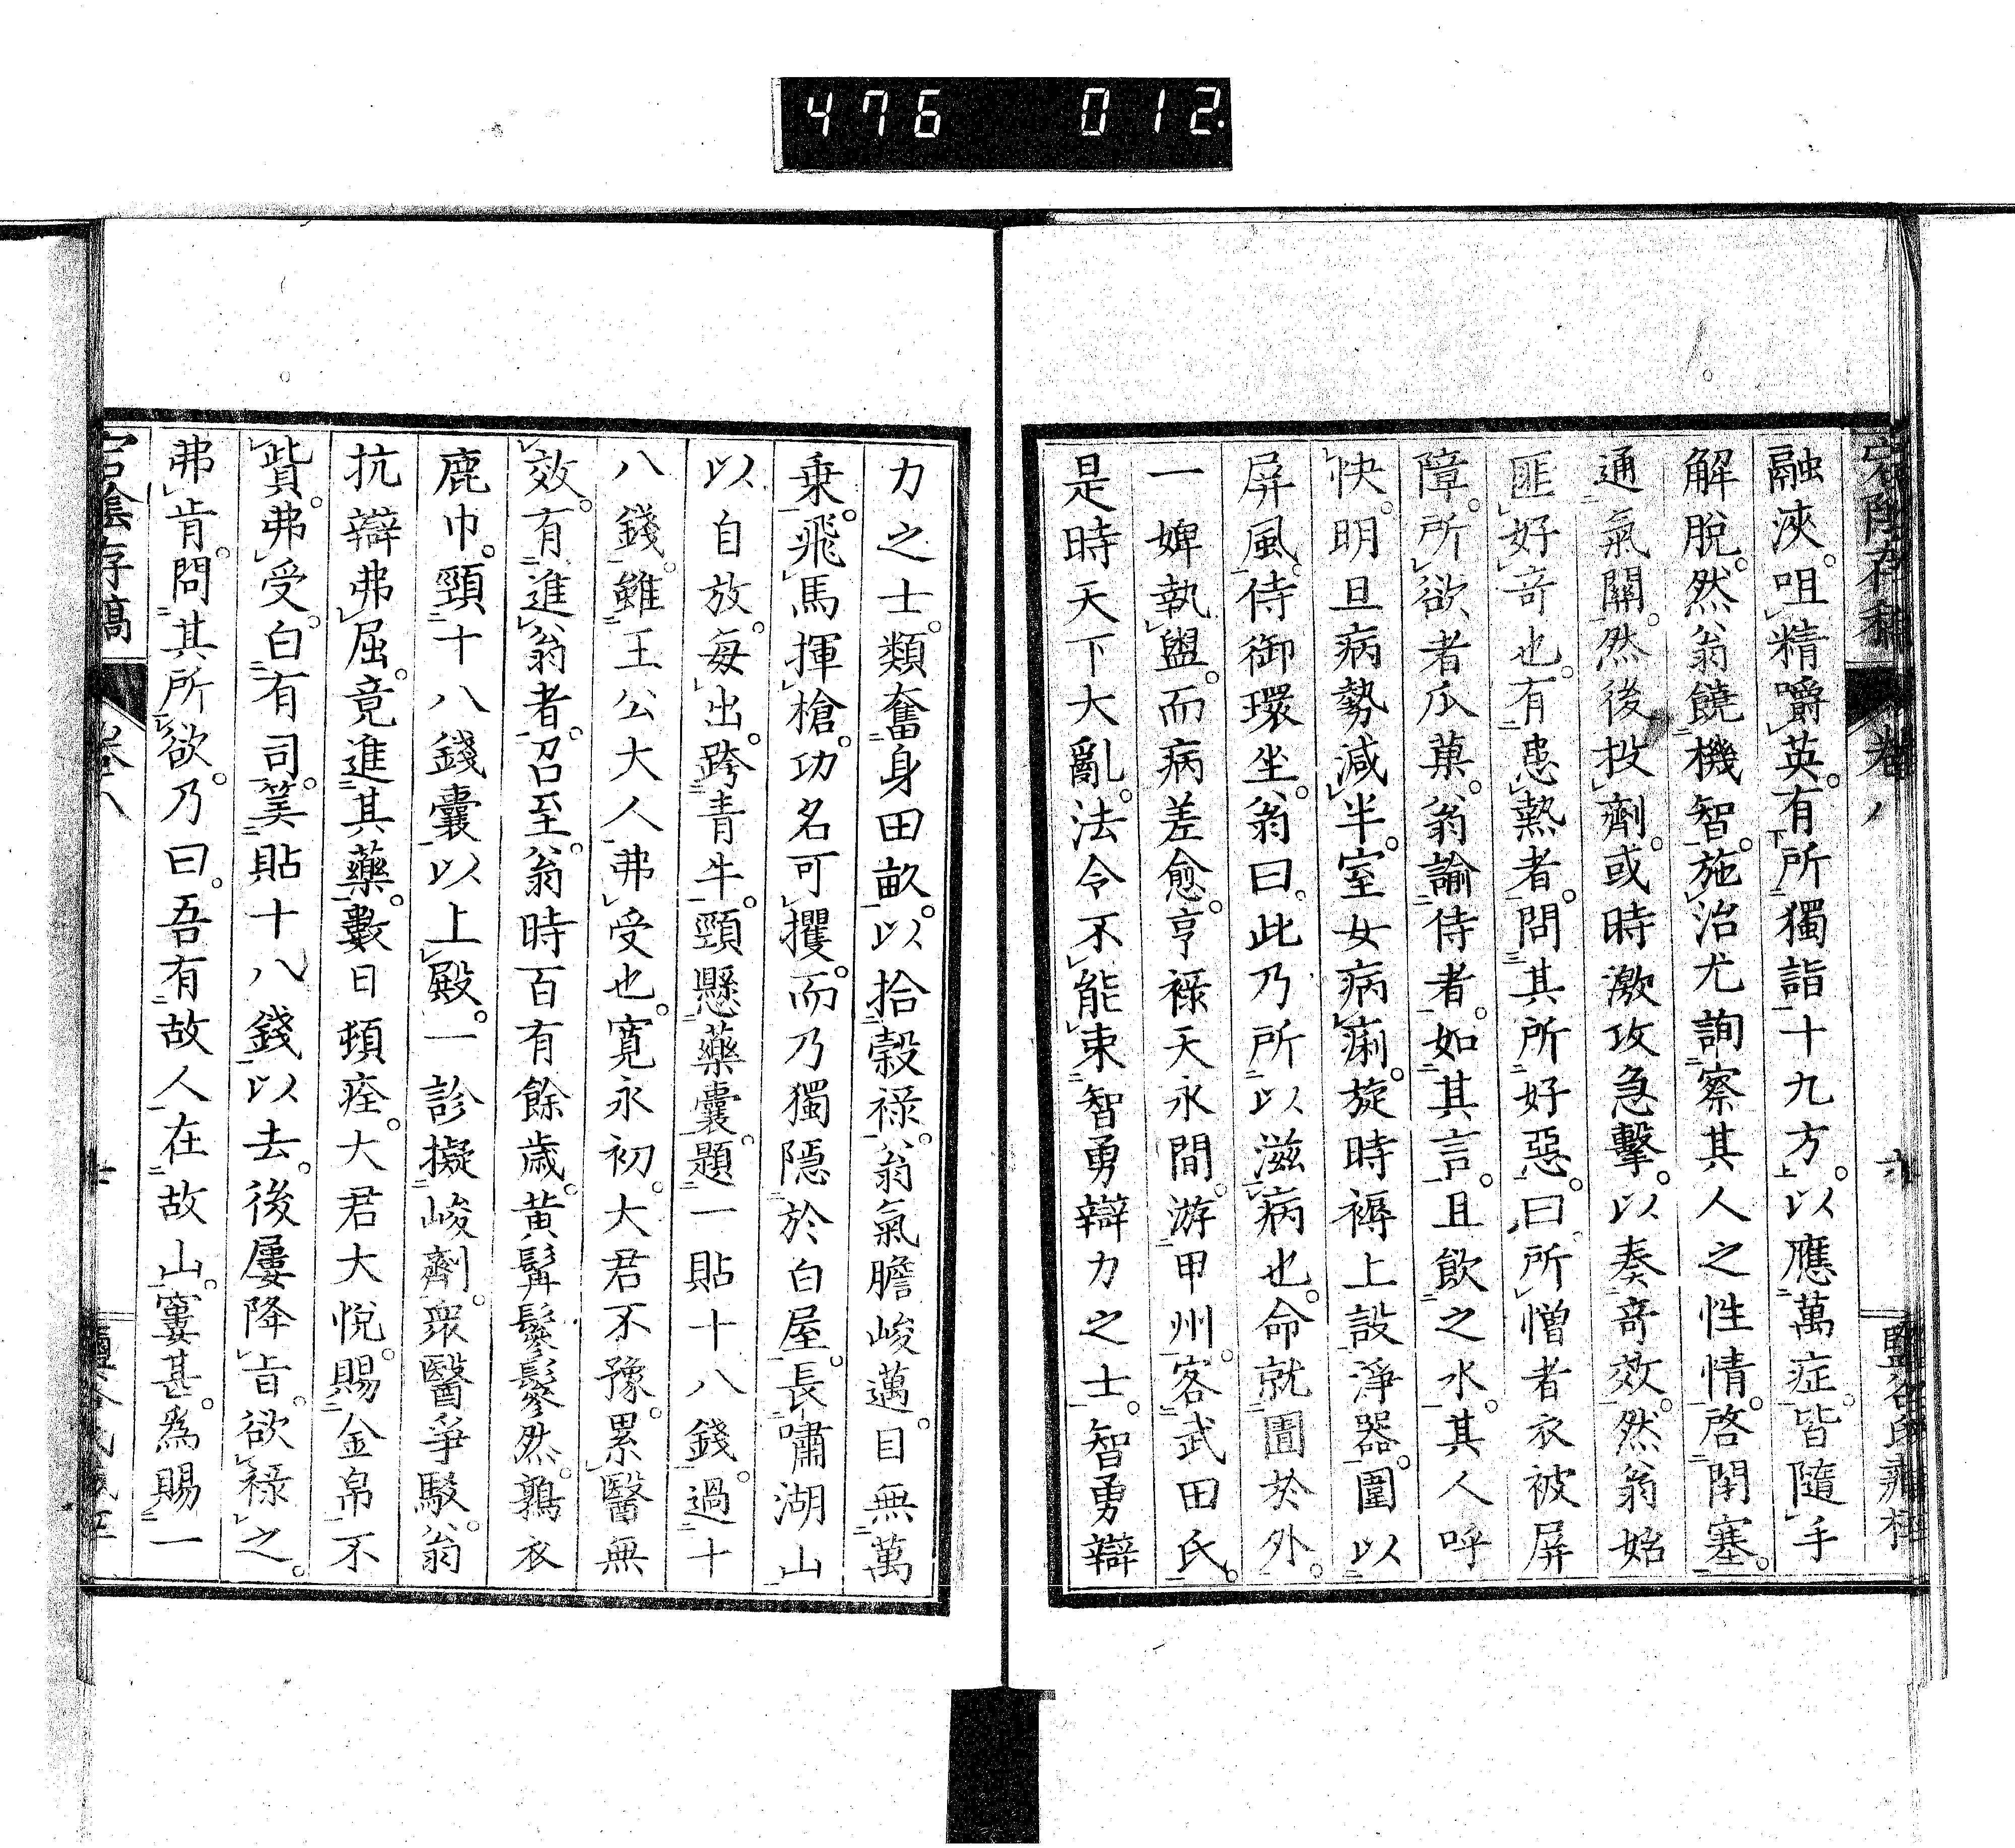 476 012.
融浹。咀精嚼英。有所獨詣十九方。以應萬症。皆隨手
解脫。然翁饒機智。施治尤詢察其人之性情。啓閉塞。
通氣關。然後投劑。或時激攻急擊。以奏竒效。然翁始
匪好竒也。有患熱者。問其所好惡。曰。所憎者衣被屏
障。所欲者瓜菓。翁諭侍者。如其言。且飲之水。其人呼
快。明旦病勢減半。室女病痢。旋時褥上設淨器。圍以
屏風。侍御環坐。翁曰。此乃所以滋病也。命就圊於外。
一婢執盥。而病差愈。享祿天永間。游甲州。客武田氏。
是時天下大亂。法令不能束智勇辯力之士。智勇辯
力之士。類奮身田畝。以拾榖祿。翁氣膽峻邁。目無萬
乗。飛馬揮槍。功名可攫。而乃獨隱於白屋。長嘯湖山
以自放。每出。跨青牛。頸懸藥囊。題一貼十八錢。過十
八錢。雖王公大人弗受也。寛永初。大君不豫。累醫無
效。有進翁者。召至。翁時百有餘歲。黄髯鬖鬖然。鶉衣
鹿巾。頸十八錢囊以上殿。一診擬峻劑。衆醫爭駁。翁
抗辯弗屈。竟進其藥。數日頓痊。大君大悅。賜金帛不
貲。弗受。白有司。筭貼十八錢以去。後屢降旨。欲祿之。
弗肯。問其所欲。乃曰。吾有故人在故山。窶甚。爲賜一
宕陰存稿 卷八